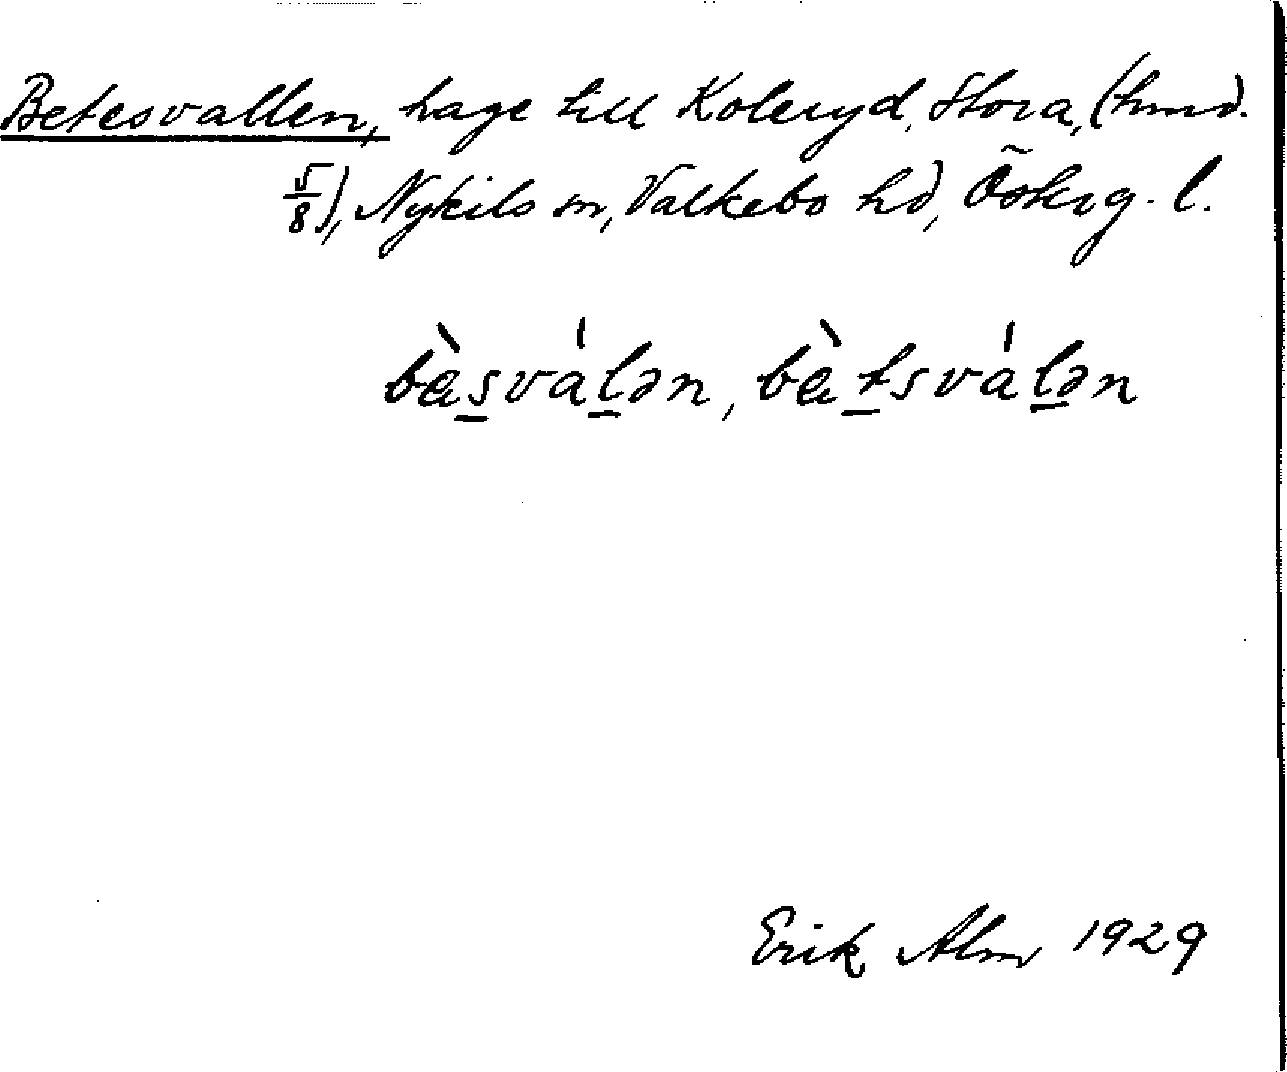 Betesvallen, hage till Koleryd, Stora, (hmd.
5/8), Nykils sn, Valkebo hd, Östrg. l.
bæ̀s̲vál̲ən, bæ̀t̲svál̲ən
Erik Alm 1929